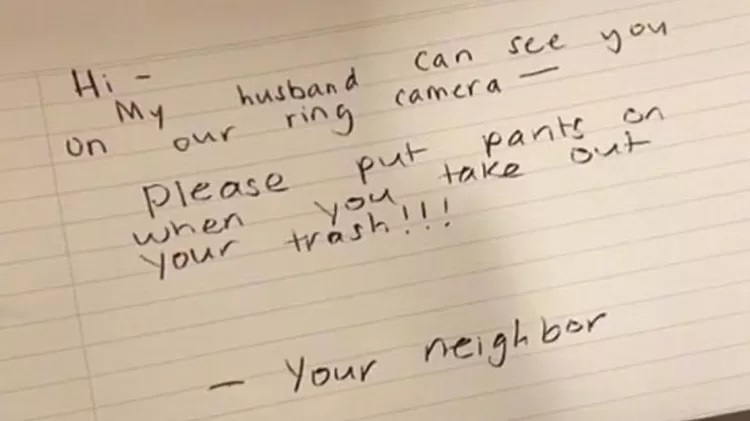 Hi -
My husband can see you
on our ring camera —
please put pants on
when you take out
your trash!!!
- Your neighbor